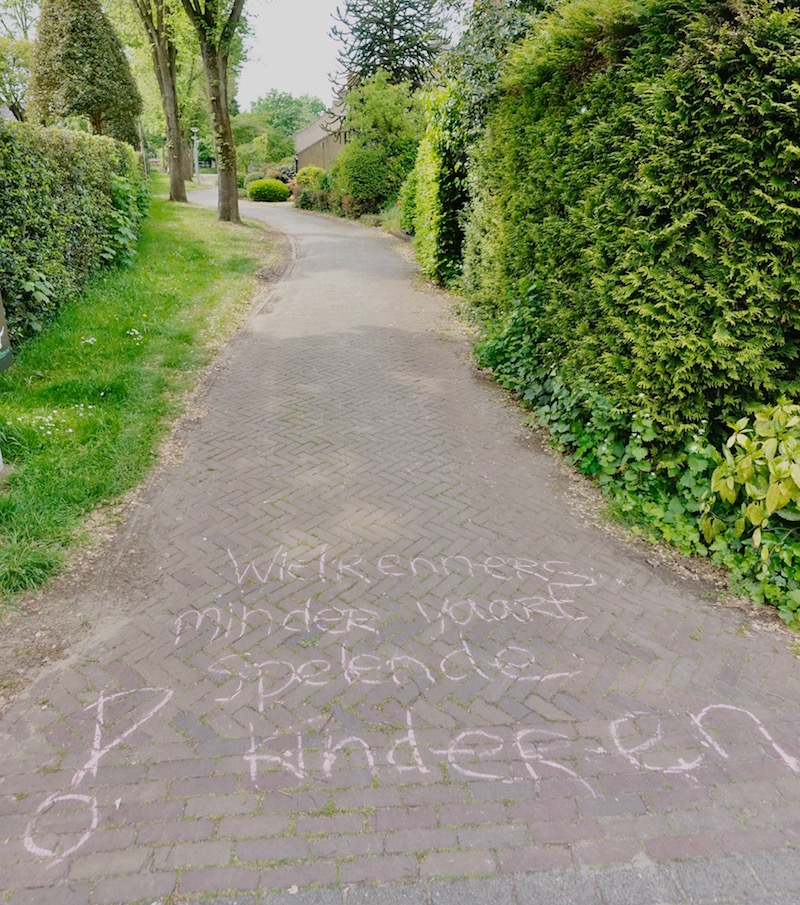 Wielrenners
minder vaart
spelende
! kinderen